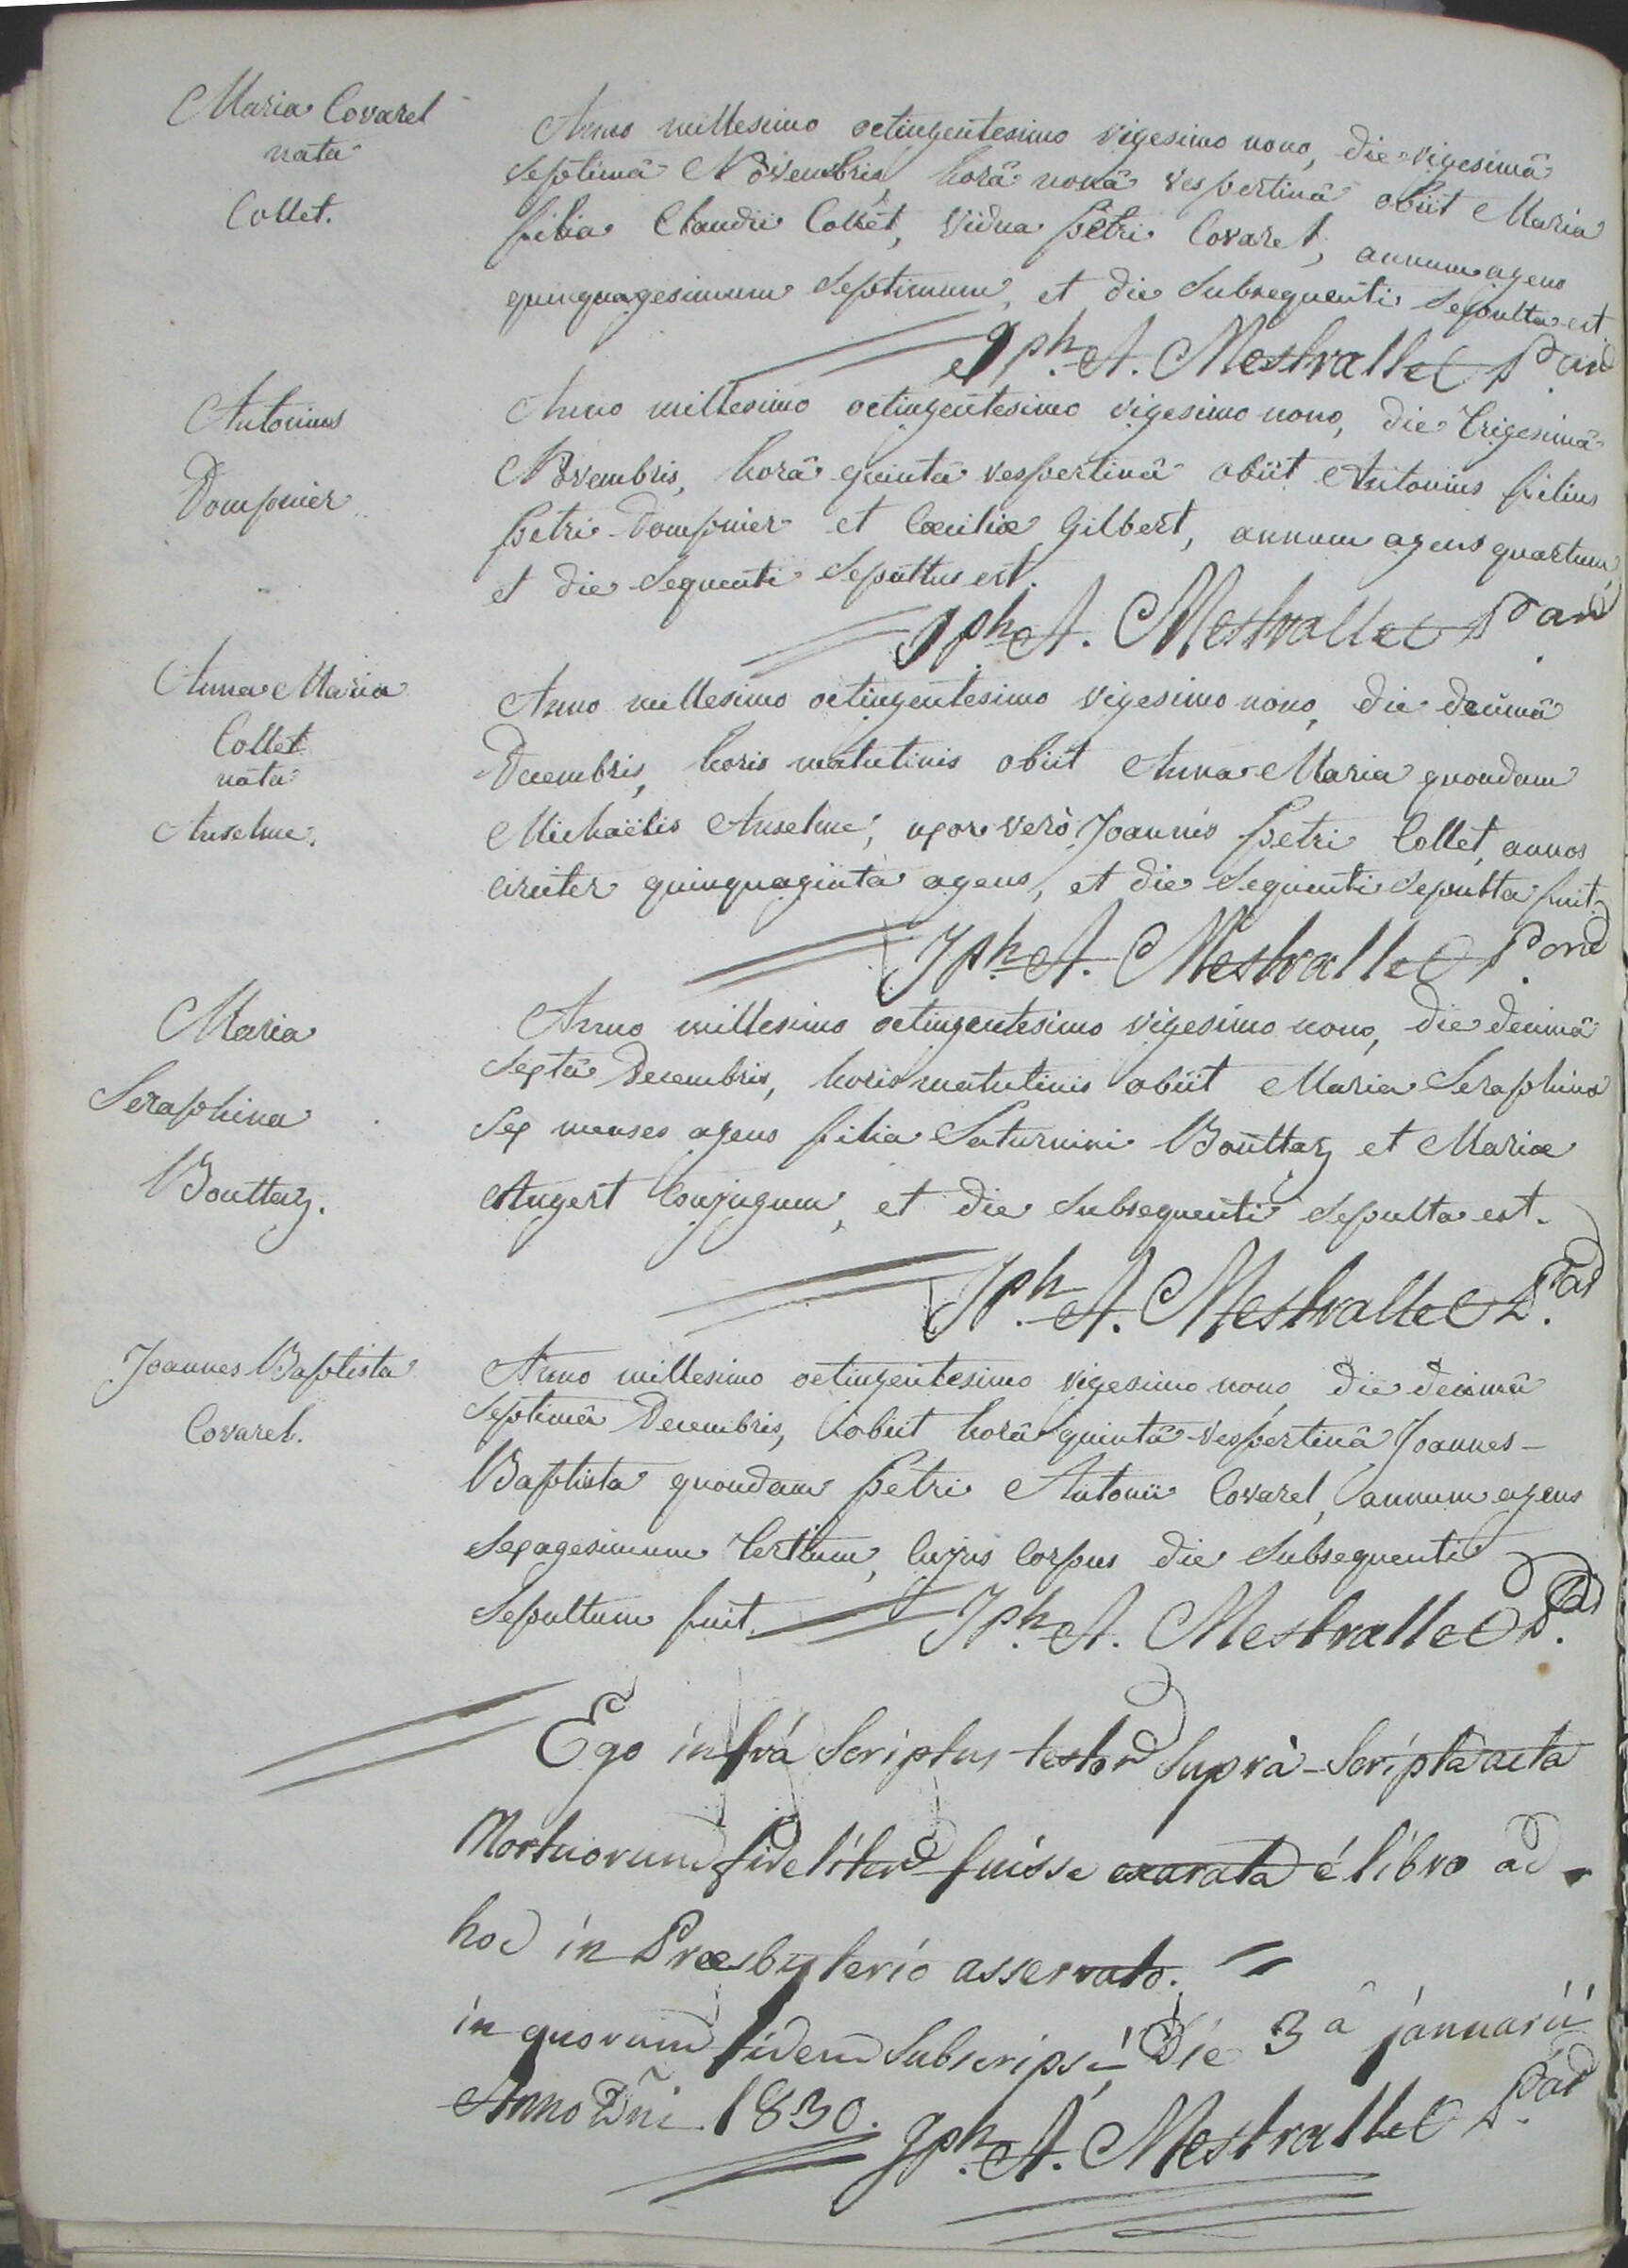 Maria Covarel
nata
Collet.
Anno millesimo octingentesimo vigesimo nono, die vigesimâ
septimâ Novembris, horâ nonâ vespertinâ obiit Maria
filia Claudii Collet, vidua petri Covarel, annum agens
quinquagesimum septimum, et die subsequenti sepulta est
Jph. A. Mestrallet
Antonius
Dompnier
Anno millesimo octingentesimo vigesimo nono, die trigesimâ
Novembris, horâ quintâ vespertinâ obiit Antonius filius
petri Dompnier et Cœciliæ Gilbert, annum agens quartum,
et die sequenti sepultus est.
Jph A. Mestrallet
Anna Maria
Collet
nata
Anselme.
Anno millesimo octingentesimo vigesimo nono, die decimâ
Decembris, horis matutinis obiit Anna Maria quondam
Michaëlis Anselme, uxor verò Joannis petri Collet, annos
circiter quinquaginta agens, et die sequenti sepulta fuit.
Jph. A. Mestrallet
Maria
Seraphina
Bouttaz.
Anno millesimo octingentesimo vigesimo nono, die decimâ
sextâ Decembris, horis matutinis obiit Maria Seraphina
sex menses agens filia Saturnini Bouttaz et Mariæ
Augert conjugum, et die subsequenti sepulta est.
Jph. A. Mestrallet
Joannes Baptista
Covarel.
Anno millesimo octingentesimo vigesimo nono, die decimâ
septimâ Decembris, obiit horâ quintâ vespertinâ Joannes-
Baptista quondam petri Antonii Covarel, annum agens
sexagesimum tertium, cujus corpus die subsequenti
sepultum fuit. Jph. A. Mestrallet
Ego infrá scriptus testor suprà-scripta acta
Mortuorum fideliter fuisse exarata é libro ad
hoc in Præsbyterio asservato.
in quorum fidem subscripsi die 3â januarii
Anno Dñi 1830. Jph. A. Mestrallet